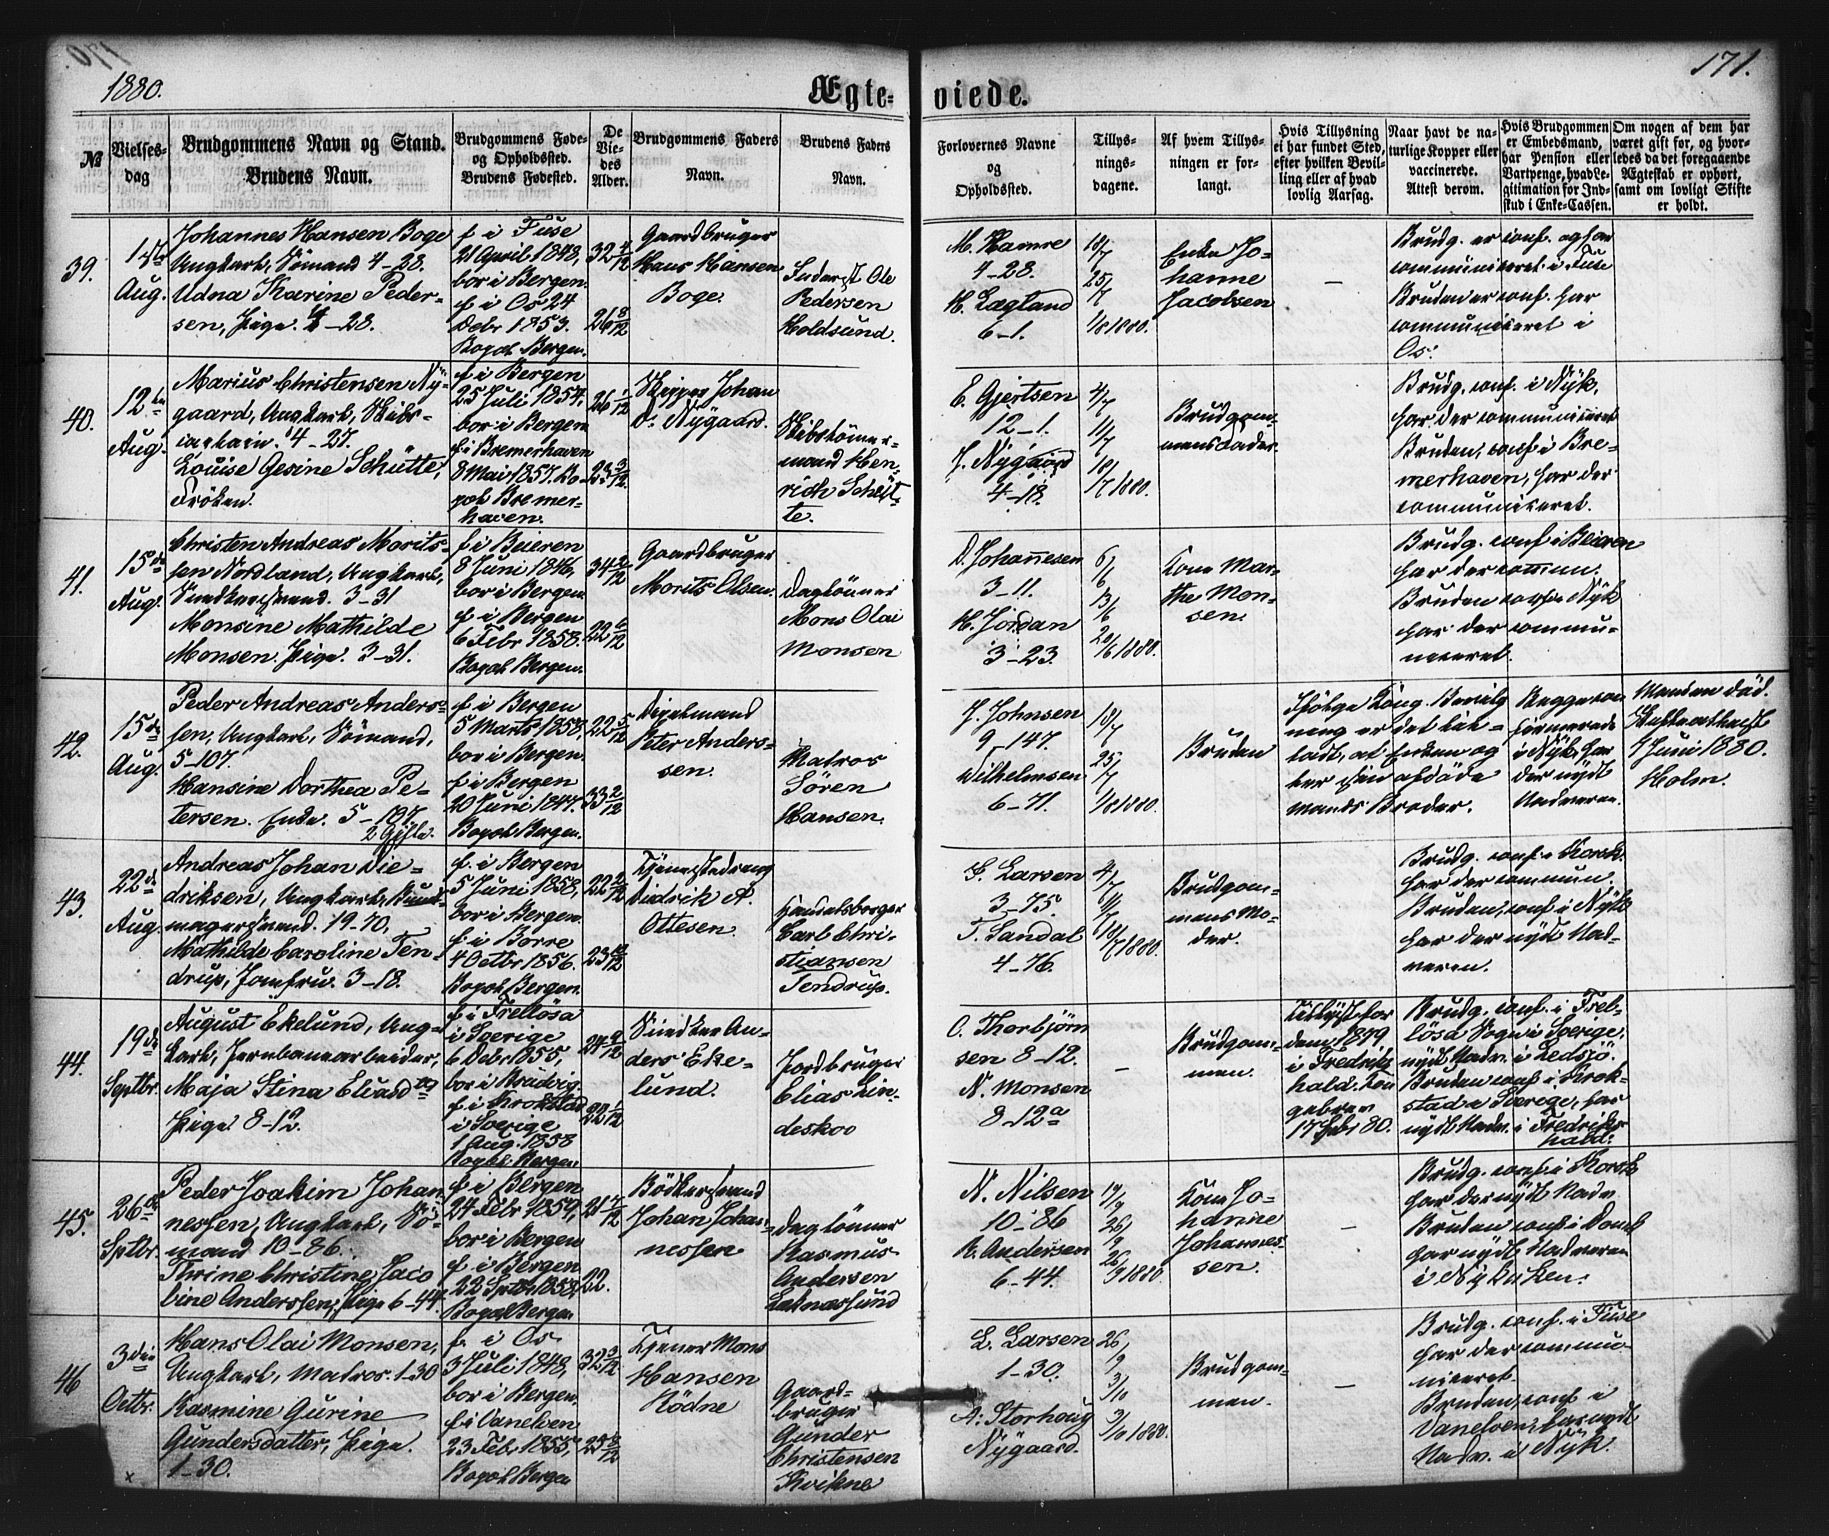 1880.
Ægte-
viede.
171.
№
Vielses-
dag
Brudgommens Navn og Stand.
Brudens Navn.
Brudgommens Føde-
og Opholdssted.
Brudens Fødested.
De
Vie-
des
Alder.
Brudgommens Faders
Navn.
Brudens Faders
Navn.
Forlovernes Navne
og
Opholdssted.
Tillys-
nings-
dagene.
Af hvem Tillys-
ningen er for-
langt.
Hvis Tillysning
ei har fundet Sted,
efter hvilken Bevil-
ling eller af hvad
lovlig Aarsag.
Naar havt de na-
turlige Kopper eller
vaccinerede.
Attest derom.
Hvis Brudgommen
er Embedsmand,
har Pension eller
Vartpenge, hvad Le-
gitimation for Ind-
skud i Enke-Cassen.
Om nogen af dem har
været gift før, og hvor-
ledes da det foregaaende
Ægteskab er ophørt,
samt om lovligt Skifte
er holdt.
39.
1ste
Aug.
Johannes Hansen Boge
Ungkarl, Sömand 4-28.
Udna Tharine Peder-
sen, Pige. 4-28.
f i Fuse
21 April 1848,
bor i Bergen.
f i Os 24
Debr 1853.
Bopæl Bergen.
32 4/12
26 8/12
Gaardbruger
Hans Hansen
Boge.
Inderst Ole
Pedersen
Holdsund.
M. Hamre
4-28.
H. Lægland
6-1.
18/7
25/7
1/8 1880.
Enke Jo-
hanne
Jacobsen
Brudg. er conf. og har
communiceret i Fuse
Bruden er conf. har
communiceret i
Os.
40.
12te
Aug.
Marius Christensen Ny-
gaard, Ungkarl, Skibs-
captain. 4-25.
Louise Gesine Schütte,
Fröken.
f i Bergen
25 Juli 1854,
bor i Bergen
f i Bremerhaven
8 Mai 1857. Bo-
pæl Bremer-
haven.
26 1/12
23 3/12
Skipper Johan
D. Nygaard.
Skibstömer-
mand Hen-
rich Schüt-
te.
E. Gjertsen
12-1.
J. Nygaard
4-18.
4/7
11/7
18/7 1880.
Brudgom-
mens Fader.
Brudg. conf. i Nyk,
har der communiceret
Bruden, conf i Bre-
merhaven, har der
communiceret.
41.
15de
Aug.
Christen Andreas Morits-
sen Nordland, Ungkarl,
Snedkersvend. 3-31
Monsine Mathilde
Monsen. Pige. 3-31.
f i Beieren
8 Juni 1846,
bor i Bergen
f i Bergen
6 Febr 1858.
Bopæl Bergen.
34 2/12
22 6/12
Gaardbruger
Morits Olsen.
Daglönner
Mons Olai
Monsen
D. Johannesen
3-11.
H. Jordan
3-23.
6/6
13/6
20/6 1880.
Kone Mar-
the Mon-
sen.
Brudg. conf i Beieren
har der commun.
Bruden conf i Nyk
har der commu-
niceret.
42.
15de
Aug.
Peder Andreas Anders-
sen, Ungkarl, Sömand,
5-107.
Hansine Dorthea Pe-
tersen. Enke. 5-107.
2 Gifte.
f i Bergen
5 Marts 1858,
bor i Bergen.
f i Bergen
20 Juni 1847.
Bopæl Bergen.
22 5/12
33 2/12
Peter Anders-
sen.
Matros
Sören
Hansen.
J. Johnsen
9-147.
Wilhelmsen
6-71.
18/7
25/7
1/8 1880.
Bruden
Ifölge Kong. Bevilg
ning er det til-
ladt, at Enken æg
ter sin afdöde
mands Broder.
Begge con
firmerede
i Nyk, har
der nydt
Nadveren.
Manden död.
7 Juni 1880.
Holm.
43.
22de
Aug.
Andreas Johan Die-
driksen, Ungkarl, Bundt-
magersvend. 19-70.
Mathilde Caroline Ten-
drup, Jomfru. 3-18.
f. i Bergen
5 Juni 1858,
bor i Bergen.
f i Borre
4 Octbr 1856.
Bopæl Bergen.
22 2/12
23 10/12
Tjenestedreng
Didrik A.
Ottesen.
Handelsborger
Carl Chri-
stiansen
Tendrup.
S. Larsen
3-75.
T. Sandal
4-76.
4/7
11/7
18/7 1880.
Brudgom-
mens Mo-
der.
Brudg. conf. i Korsk.
har der commun.
Bruden, conf i Nyk
har der nydt Nad-
veren.
44.
19de
Septbr.
August Ekelund, Ung-
karl, Jernbanearbeider,
Maja Stina Eliasd
Pige. 8-12.
f i Frellösa
i Sverige
6 Debr 1855,
f i Krokstad
i Sverige
1 Aug. 1858
Bopæl Bergen
24 9/12
22 1/12
Snedker An-
ders Eke-
lund.
Jordbruger
Elias Lin-
deskov
O. Thorbjörn
sen 8-12.
N. Monsen
8-12a
Brudgom-
men.
Tillyst for
dem 1879
i Fredriks
hald.
17 Febr 80.
Brudg. conf. i Frel-
lösa Sogn i Sverige,
nydt Nadv. i Ledsjö.
Bruden conf i Krok-
stad i Sverige, har
nydt Nadv. i Fredriks-
hald.
45.
26de
Sptbr.
Peder Joakim Johan-
nessen, Ungkarl, Sö-
mand 10-86.
Thrine Christine Jaco
bine Anderssen, Pige 6-44.
f i Bergen
24 Febr 1859,
bor i Bergen
f i Bergen
22 Sptbr 1858,
Bopæl Bergen
21 7/12
22.
Bödkersvend
Johan Johan-
nessen
Daglönner
Rasmus
Andersen
N. Nilsen
10-86
A. Andersen
6-44.
12/9
26/9 1880.
Kone Jo-
hanne
Johannes-
sen.
Brudg. conf. i Korsk
har der nydt Nadv
Bruden conf i Domk
har nydt Nadveren
i Nykirken.
46
3die
Octbr.
Hans Olai Monsen,
Ungkarl, Matros. 1-30
Rasmine Gurine
Gundersdatter, Pige.
1-30.
f. i Os
3 Juli 1848,
bor i Bergen.
f i Vanelven
23 Febr 1855,
Bopæl Bergen
32 3/12
25 8/12
Tjener Mons
Hansen
Rödne
Gaard-
bruger
Gunder
Christensen
Kvikne
L. Larsen
1-30.
A. Storhoug
Nygaard.
26/9
3/10
3/10 1880.
Brudgom-
men.
Brudg. conf. i Fuse
har der commu-
niceret.
Bruden, conf i
Vanelven, har nydt
Nadv. i Nyk.